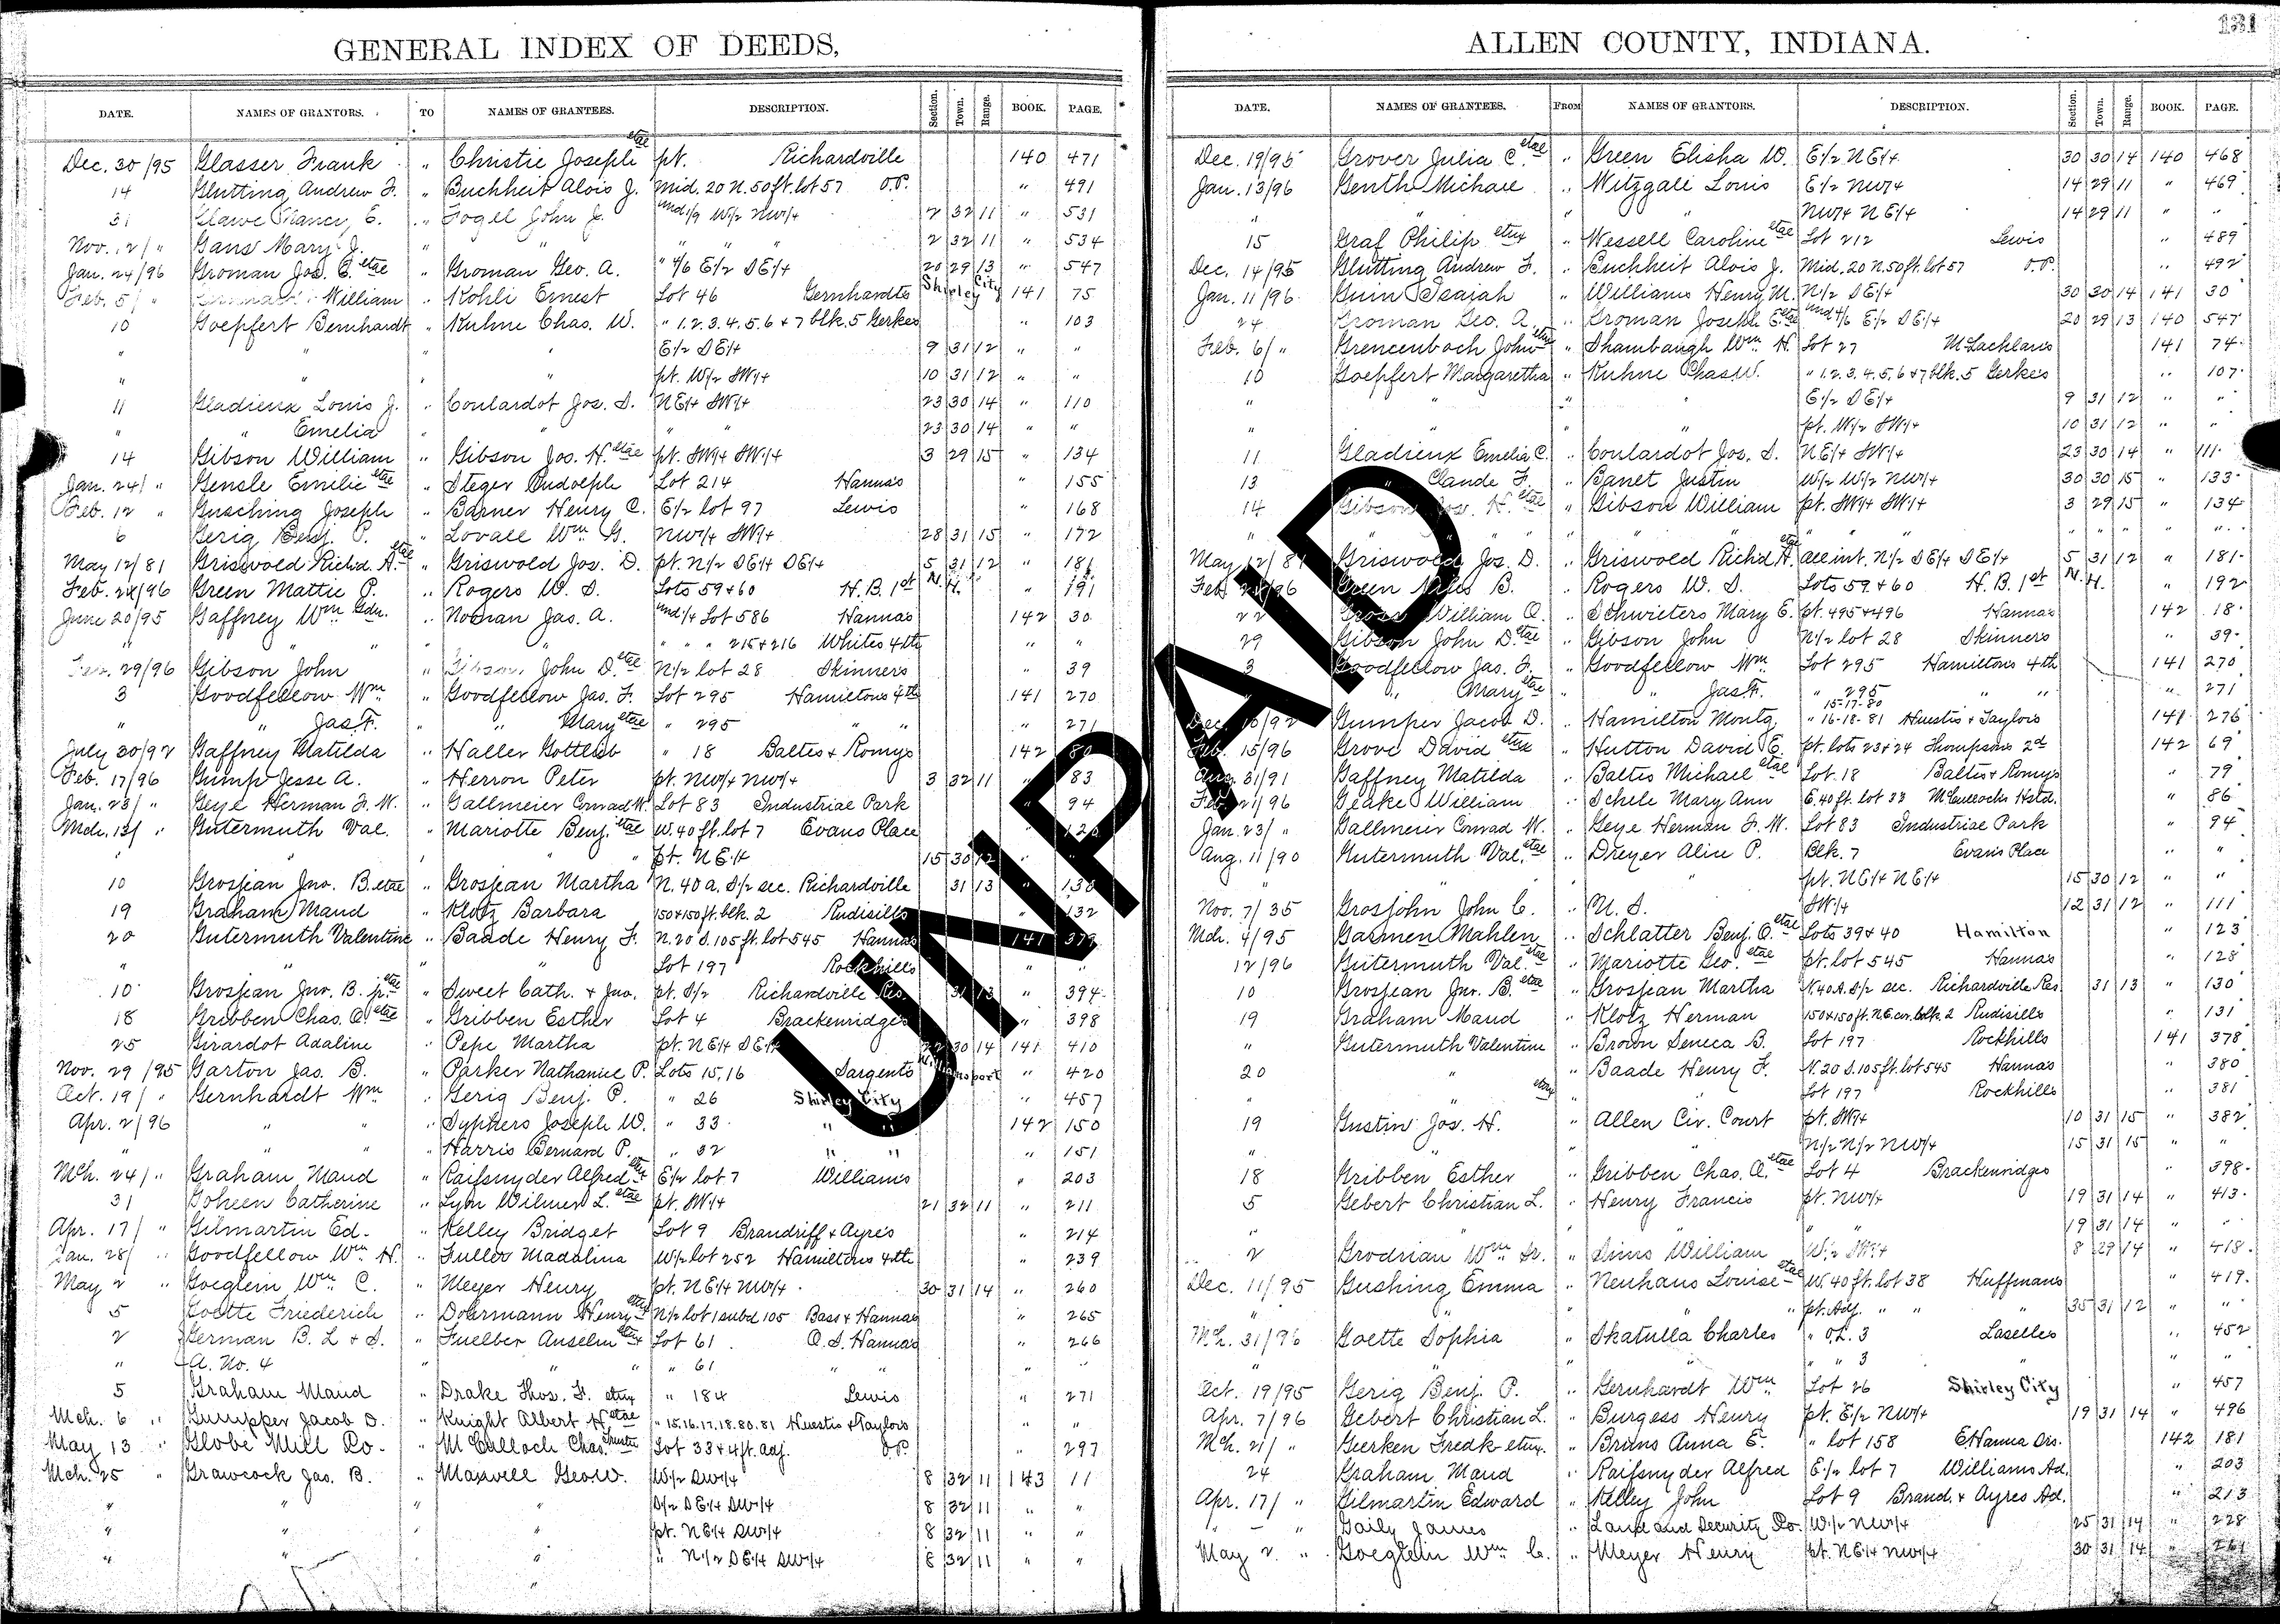 131
GENERAL INDEX OF DEEDS,
DATE. NAMES OF GRANTORS. TO NAMES OF GRANTEES. DESCRIPTION. Section. Town. Range. BOOK. PAGE.
Dec. 30/95 Glasser Frank " Christie Joseph etal pt. Richardville 140 471
14 Glutting Andrew F. " Buchheit Alois J. Mid. 20 N. 50 ft. lot 57 O.P. " 491
31 Nancy E. " Fogel John J. Und 1/9 W/2 NW/4 2 32 11 " 531
Nov. 12/ " Gans Mary J. " " " " " 2 32 11 " 534
Jan. 24/96 Groman Jos. E. etal " Groman Geo. A. " 4/6 E/2 SE/4 20 29 13 " 547
Feb. 5/ " William " Kohli Ernest Lot 46 Gernhardts Shirley City 141 75
10 Goepfert Bernhardt " Kuhne Chas. W. " 1.2.3.4.5.6 & 7 blk. 5 Gerkes " 103
" " " " E/2 SE/4 9 31 12 " "
" " " " pt. W/2 SW/4 10 31 12 " "
11 Gladieux Louis J. " Coulardot Jos. S. NE/4 SW/4 23 30 14 " 110
" " Emelia " " " " 23 30 14 " "
14 Gibson William " Gibson Jos. H. etal pt. SW/4 SW/4 3 29 15 " 134
Jan. 24/ " Gensle Emilie etal " Steger Rudolph Lot 214 Hannas " 155
Feb. 12 " Busching Joseph " Barner Henry C. E/2 lot 97 Lewis " 168
6 Gerig Benj. P. " Lovall Wm. G. NW/4 SW/4 28 31 15 " 172
May 12/81 Griswold Richd. A. etal " Griswold Jos. D. pt. N/2 SE/4 SE/4 5 31 12 " 181
Feb. 24/96 Green Mattie P. " Rogers W. S. Lots 59 & 60 H. B. 1st N. H. " 191
June 20/95 Gaffney Wm Gdn. " Noonan Jas. A. Und 1/4 Lot 586 Hannas 142 30
" " " " " " 215 & 216 Whites 4th " "
29/96 Gibson John " Gibson John D. etal N/2 lot 28 Skinners " 39
3 Goodfellow Wm " Goodfellow Jas. F. Lot 295 Hamiltons 4th 141 270
" " Jas. F. " " Mary etal " 295 " " " 271
July 30/92 Gaffney Matilda " Haller Gottlieb " 18 Baltes & Romys 142 80
Feb. 17/96 Gump Jesse A. " Herron Peter pt. NW/4 NW/4 3 32 11 " 83
Jan. 23/ " Geye Herman F. W. " Gallmeier Conrad W. Lot 83 Industrial Park " 94
Mch. 12/ " Gutermuth Val. " Mariotte Benj. etal W. 40 ft. lot 7 Evans Place
" " " " pt. NE/4 15 30 12 " "
10 Grosjean Jno. B. etal " Grosjean Martha N. 40 a. S/2 sec. Richardville 31 13 " 130
19 Graham Maud " Klotz Barbara 150 x 150 ft. blk. 2 Rudisills " 132
20 Gutermuth Valentine " Baade Henry F. N. 20 S. 105 ft. lot 545 Hannas 141 379
" " " " Lot 197 Rockhills " "
10 Grosjean Jno. B. jr. etal " Sweet Cath. & Jno. pt. S/2 Richardville Res. 31 13 " 394
18 Gribben Chas. A. etal " Gribben Esther Lot 4 Brackenridges " 398
25 Girardot Adaline " Pepe Martha pt. NE/4 SE/4 22 30 14 141 410
Nov. 29/95 Garton Jas. B. " Parker Nathaniel P. Lots 15, 16 Sargents Williamsport " 420
Oct. 19/ " Gernhardt Wm " Gerig Benj. P. " 26 Shirley City " 457
Apr. 2/96 " " " Syphers Joseph W. " 33 " " 142 150
" " " " Harris Bernard P. " 32 " " " 151
Mch. 24/ " Graham Maud " Raifsnyder Alfred etux E/2 lot 7 Williams " 203
31 Goheen Catherine " Lyon Wilmer L. etal pt. SW/4 21 32 11 " 211
Apr. 17/ " Gilmartin Ed. " Kelley Bridget Lot 9 Brandriff & Ayres " 214
Jan. 28/ " Goodfellow Wm H. " Fuller Madalina W/2 lot 252 Hamiltons 4th " 239
May 2 " Goeglein Wm. C. " Meyer Henry pt. NE/4 NW/4 30 31 14 " 260
5 Goette Friederich " Doermann Henry etux N/2 lot 1 subd 105 Bass & Hannas " 265
2 German B. L & S. " Fuelber Anselm etux Lot 61 O. S. Hannas " 266
" A. No. 4 " " " " 61 " " " "
5 Graham Maud " Drake Thos. F. etux " 184 Lewis " 271
Mch. 6 " Gumpper Jacob D. " Knight Albert H. etal " 15.16.17.18.80.81 Huestis & Taylors " "
May 13 " Globe Mill Co. " McCulloch Chas. Trustee Lot 33 & 4 ft. adj. O.P. " 297
Mch. 25 " Grawcock Jas. B. " Maxwell Geo. W. W/2 SW/4 8 32 11 143 11
" " " " S/2 SE/4 SW/4 8 32 11 " "
" " " pt. NE/4 SW/4 8 32 11 " "
" " " " N/2 SE/4 SW/4 8 32 11 " "
ALLEN COUNTY, INDIANA.
DATE. NAMES OF GRANTEES. FROM NAMES OF GRANTORS. DESCRIPTION. Section. Town. Range. BOOK. PAGE.
Dec. 19/95 Grover Julia C. etal " Green Elisha W. E/2 NE/4 30 30 14 140 468
Jan. 13/96 Genth Michael " Witzgall Louis E/2 NW/4 14 29 11 " 469
" " " " NW/4 NE/4 14 29 11 " "
15 Graf Philip etux " Wessell Caroline etal Lot 212 Lewis " 489
Dec. 14/95 Glutting Andrew F. " Buchheit Alois J. Mid. 20 N. 50 ft. lot 57 O.P. " 492
Jan. 11/96 Guin Isaiah " Williams Henry M. N/2 SE/4 30 30 14 141 30
24 Groman Geo. A. " Groman Joseph E. etal Und 4/6 E/2 SE/4 20 29 13 140 547
Feb. 6/ " Grencenbach John etux " Shambaugh Wm. H. Lot 27 McLachlans 141 74
10 Goepfert Margaretha " Kuhne Chas. W. " 1.2.3.4.5.6 & 7 blk. 5 Gerkes " 107
" " " " E/2 SE/4 9 31 12 " "
" " " " pt. W/2 SW/4 10 31 12 " "
11 Gladieux Emelia C. " Coulardot Jos. S. NE/4 SW/4 23 30 14 " 111
13 " Claude F. " Banet Justin W/2 W/2 NW/4 30 30 15 " 133
14 Gibson Jos. H. etal " Gibson William pt. SW/4 SW/4 3 29 15 " 134
" " " " " " " " " " "
May 12/81 Griswold Jos. D. " Griswold Richd A. etal all int. N/2 SE/4 SE/4 5 31 12 " 181
Feb. 24/96 Green Niles B. " Rogers W. S. Lots 59 & 60 H. B. 1st N. H. " 192
22 Gross William O. " Schwieters Mary E. pt. 495 & 496 Hannas 142 18
29 Gibson John D. etal " Gibson John N/2 lot 28 Skinners " 39
3 Goodfellow Jas. F. " Goodfellow Wm. Lot 295 Hamiltons 4th 141 270
" Mary etal " " Jas. F. " 295 " " " 271
15-17-80
Dec. 10/92 Gumper Jacob D. " Hamilton Montg. " 16-18-81 Huestis & Taylors 141 276
Feb. 15/96 Grove David etux " Hutton David E. pt. lots 23 & 24 Thompsons 2d 142 69
Aug. 31/91 Gaffney Matilda " Baltes Michael etal Lot 18 Baltes & Romys " 79
Feb. 21/96 Geake William " Schele Mary Ann E. 40 ft. lot 33 McCullochs Hstd. " 86
Jan. 23/ " Gallmeier Conrad W. " Geye Herman F. W. Lot 83 Industrial Park " 94
Aug. 11/90 Gutermuth Val. etal " Dreyer Alice P. Blk. 7 Evans Place " "
" " pt. NE/4 NE/4 15 30 12 " "
Nov. 7/35 Grosjohn John C. " U. S. SW/4 12 31 12 " 111
Mch. 4/95 Garmen Mahlen " Schlatter Benj. O. etal Lots 39 & 40 Hamilton " 123
12/96 Gutermuth Val. etal " Mariotte Geo. etal pt. lot 545 Hannas " 128
10 Grosjean Jno. B. etal " Grosjean Martha N. 40 A. S/2 sec. Richardville Res. 31 13 " 130
19 Graham Maud " Klotz Herman 150 x 150 ft. N.E. cor. blk. 2 Rudisills " 131
" Gutermuth Valentine " Brown Seneca B. Lot 197 Rockhills 141 378
20 " " Baade Henry F. N. 20 S. 105 ft. lot 545 Hannas " 380
" etux " " Lot 197 Rockhills " 381
19 Gustin Jos. H. " Allen Cir. Court pt. SW/4 10 31 15 " 382
" " " N/2 N/2 NW/4 15 31 15 " "
18 Gribben Esther " Gribben Chas. A. etal Lot 4 Brackenridges " 398
5 Gebert Christian L. " Henry Francis pt. NW/4 19 31 14 " 413
" " " " " 19 31 14 " "
2 Grodrian Wm. Sr. " Sims William W/2 SW/4 8 29 14 " 418
Dec. 11/95 Gushing Emma " Neuhaus Louise etal W. 40 ft. lot 38 Huffmans " 419
" " " " pt. Adj. " " " 35 31 12 " "
Mch. 31/96 Goette Sophia " Skatulla Charles " O.L. 3 Laselles " 452
" " " " " 3 " " "
Oct. 19/95 Gerig Benj. P. " Gernhardt Wm Lot 26 Shirley City " 457
Apr. 7/96 Gebert Christian L. " Burgess Henry pt. E/2 NW/4 19 31 14 " 496
Mch. 21/ " Gerken Fredk etux. " Bruns Anna E. " lot 158 E Hanna Ors. 142 181
24 Graham Maud " Raifsnyder Alfred E/2 lot 7 Williams Ad. " 203
Apr. 17/ " Gilmartin Edward " Kelley John Lot 9 Brand. & Ayres Ad. " 213
" - " Gaily James " Land and Security Co. W/2 NW/4 25 31 14 " 228
May 2. " Goeglein Wm. C. " Meyer Henry pt. NE/4 NW/4 30 31 14 " 261
UNPAID